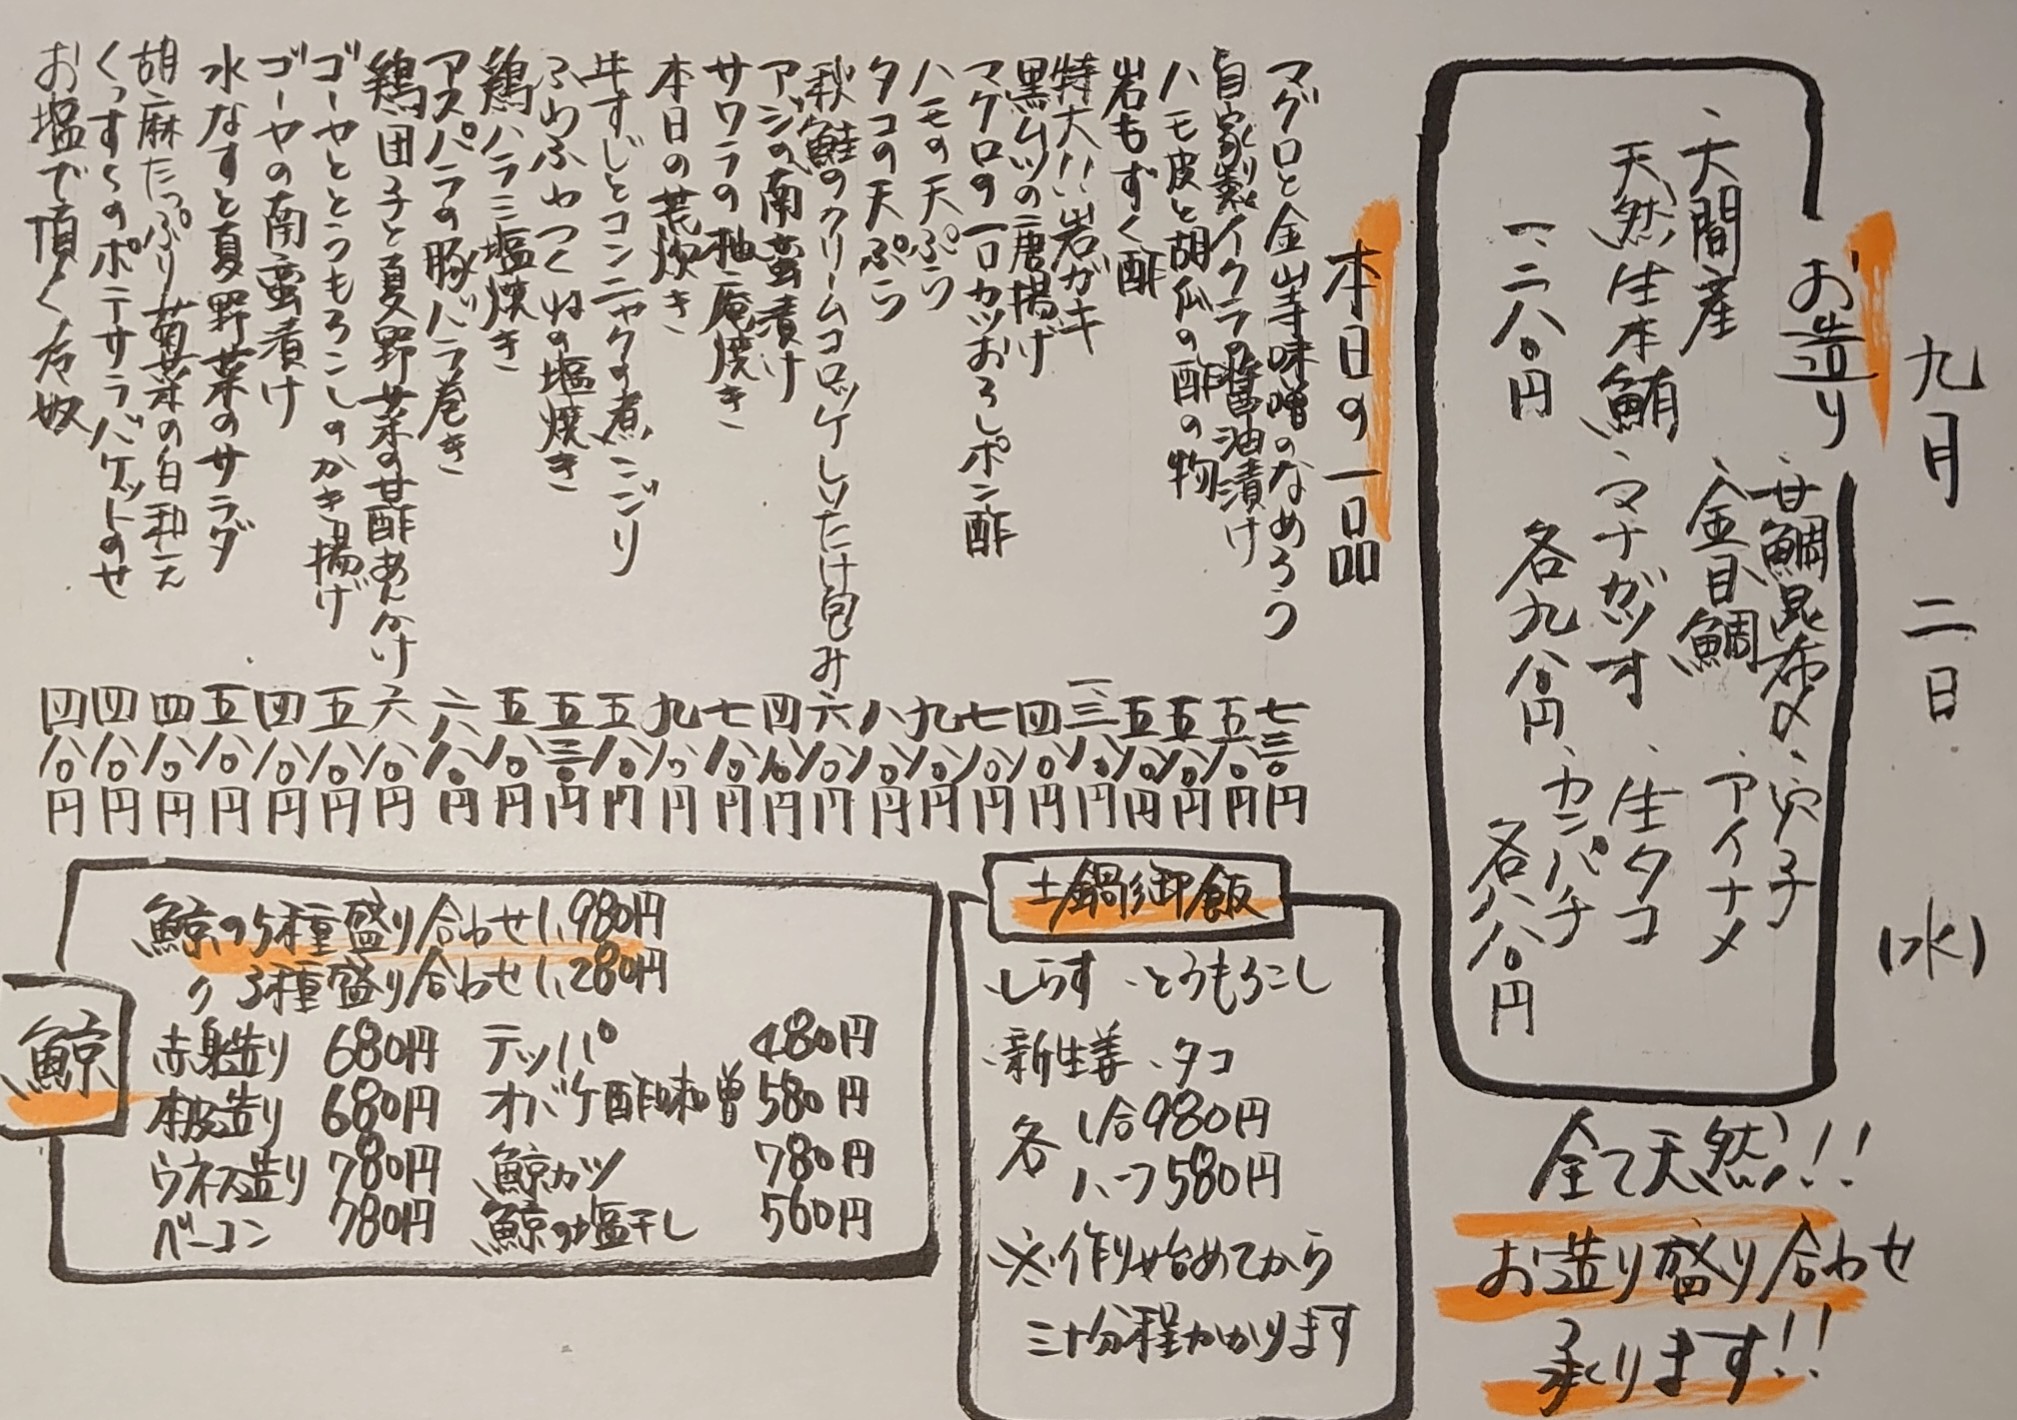 九月二日(水)
お造り
・甘鯛昆布〆
・穴子
・大間産
天然生本鮪
一、二八〇円
・金目鯛
・マナガツオ
各九八〇円
・アイナメ
・生タコ
・カンパチ
各八八〇円
全て天然!!
お造り盛り合わせ
承ります!!
本日の一品
マグロと金山寺味噌のなめろう 七三〇円
自家製イクラの醤油漬け 五八〇円
ハモ皮と胡瓜の酢の物 五八〇円
岩もずく酢 五八〇円
特大!!岩ガキ 一、三八〇円
黒ムツの唐揚げ 四八〇円
マグロの一口カツおろしポン酢 七八〇円
ハモの天ぷら 九八〇円
タコの天ぷら 八八〇円
秋鮭のクリームコロッケしいたけ包み 六八〇円
アジの南蛮漬け 四八〇円
サワラの柚庵焼き 七八〇円
本日の荒炊き 九八〇円
牛すじとコンニャクの煮こごり 五八〇円
ふわふわつくねの塩焼き 五三〇円
鶏ハラミ塩焼き 五八〇円
アスパラの豚バラ巻き 六八〇円
鶏団子と夏野菜の甘酢あんかけ 六八〇円
ゴーヤととうもろこしのかき揚げ 五八〇円
ゴーヤの南蛮漬け 四八〇円
水なすと夏野菜のサラダ 五八〇円
胡麻たっぷり菊菜の白和え 四八〇円
くっすらのポテサラバケットのせ 四八〇円
お塩で頂く冷奴 四八〇円
土鍋御飯
・しらす ・とうもろこし
・新生姜 ・タコ
各 1合980円
ハーフ580円
※作り始めてから
三十分程かかります
鯨
鯨の5種盛り合わせ1,980円
〃 3種盛り合わせ1,280円
赤身造り 680円 テッパ 480円
本皮造り 680円 オバケ酢味噌 580円
ウネス造り 780円 鯨カツ 780円
ベーコン 780円 鯨の塩干し 560円